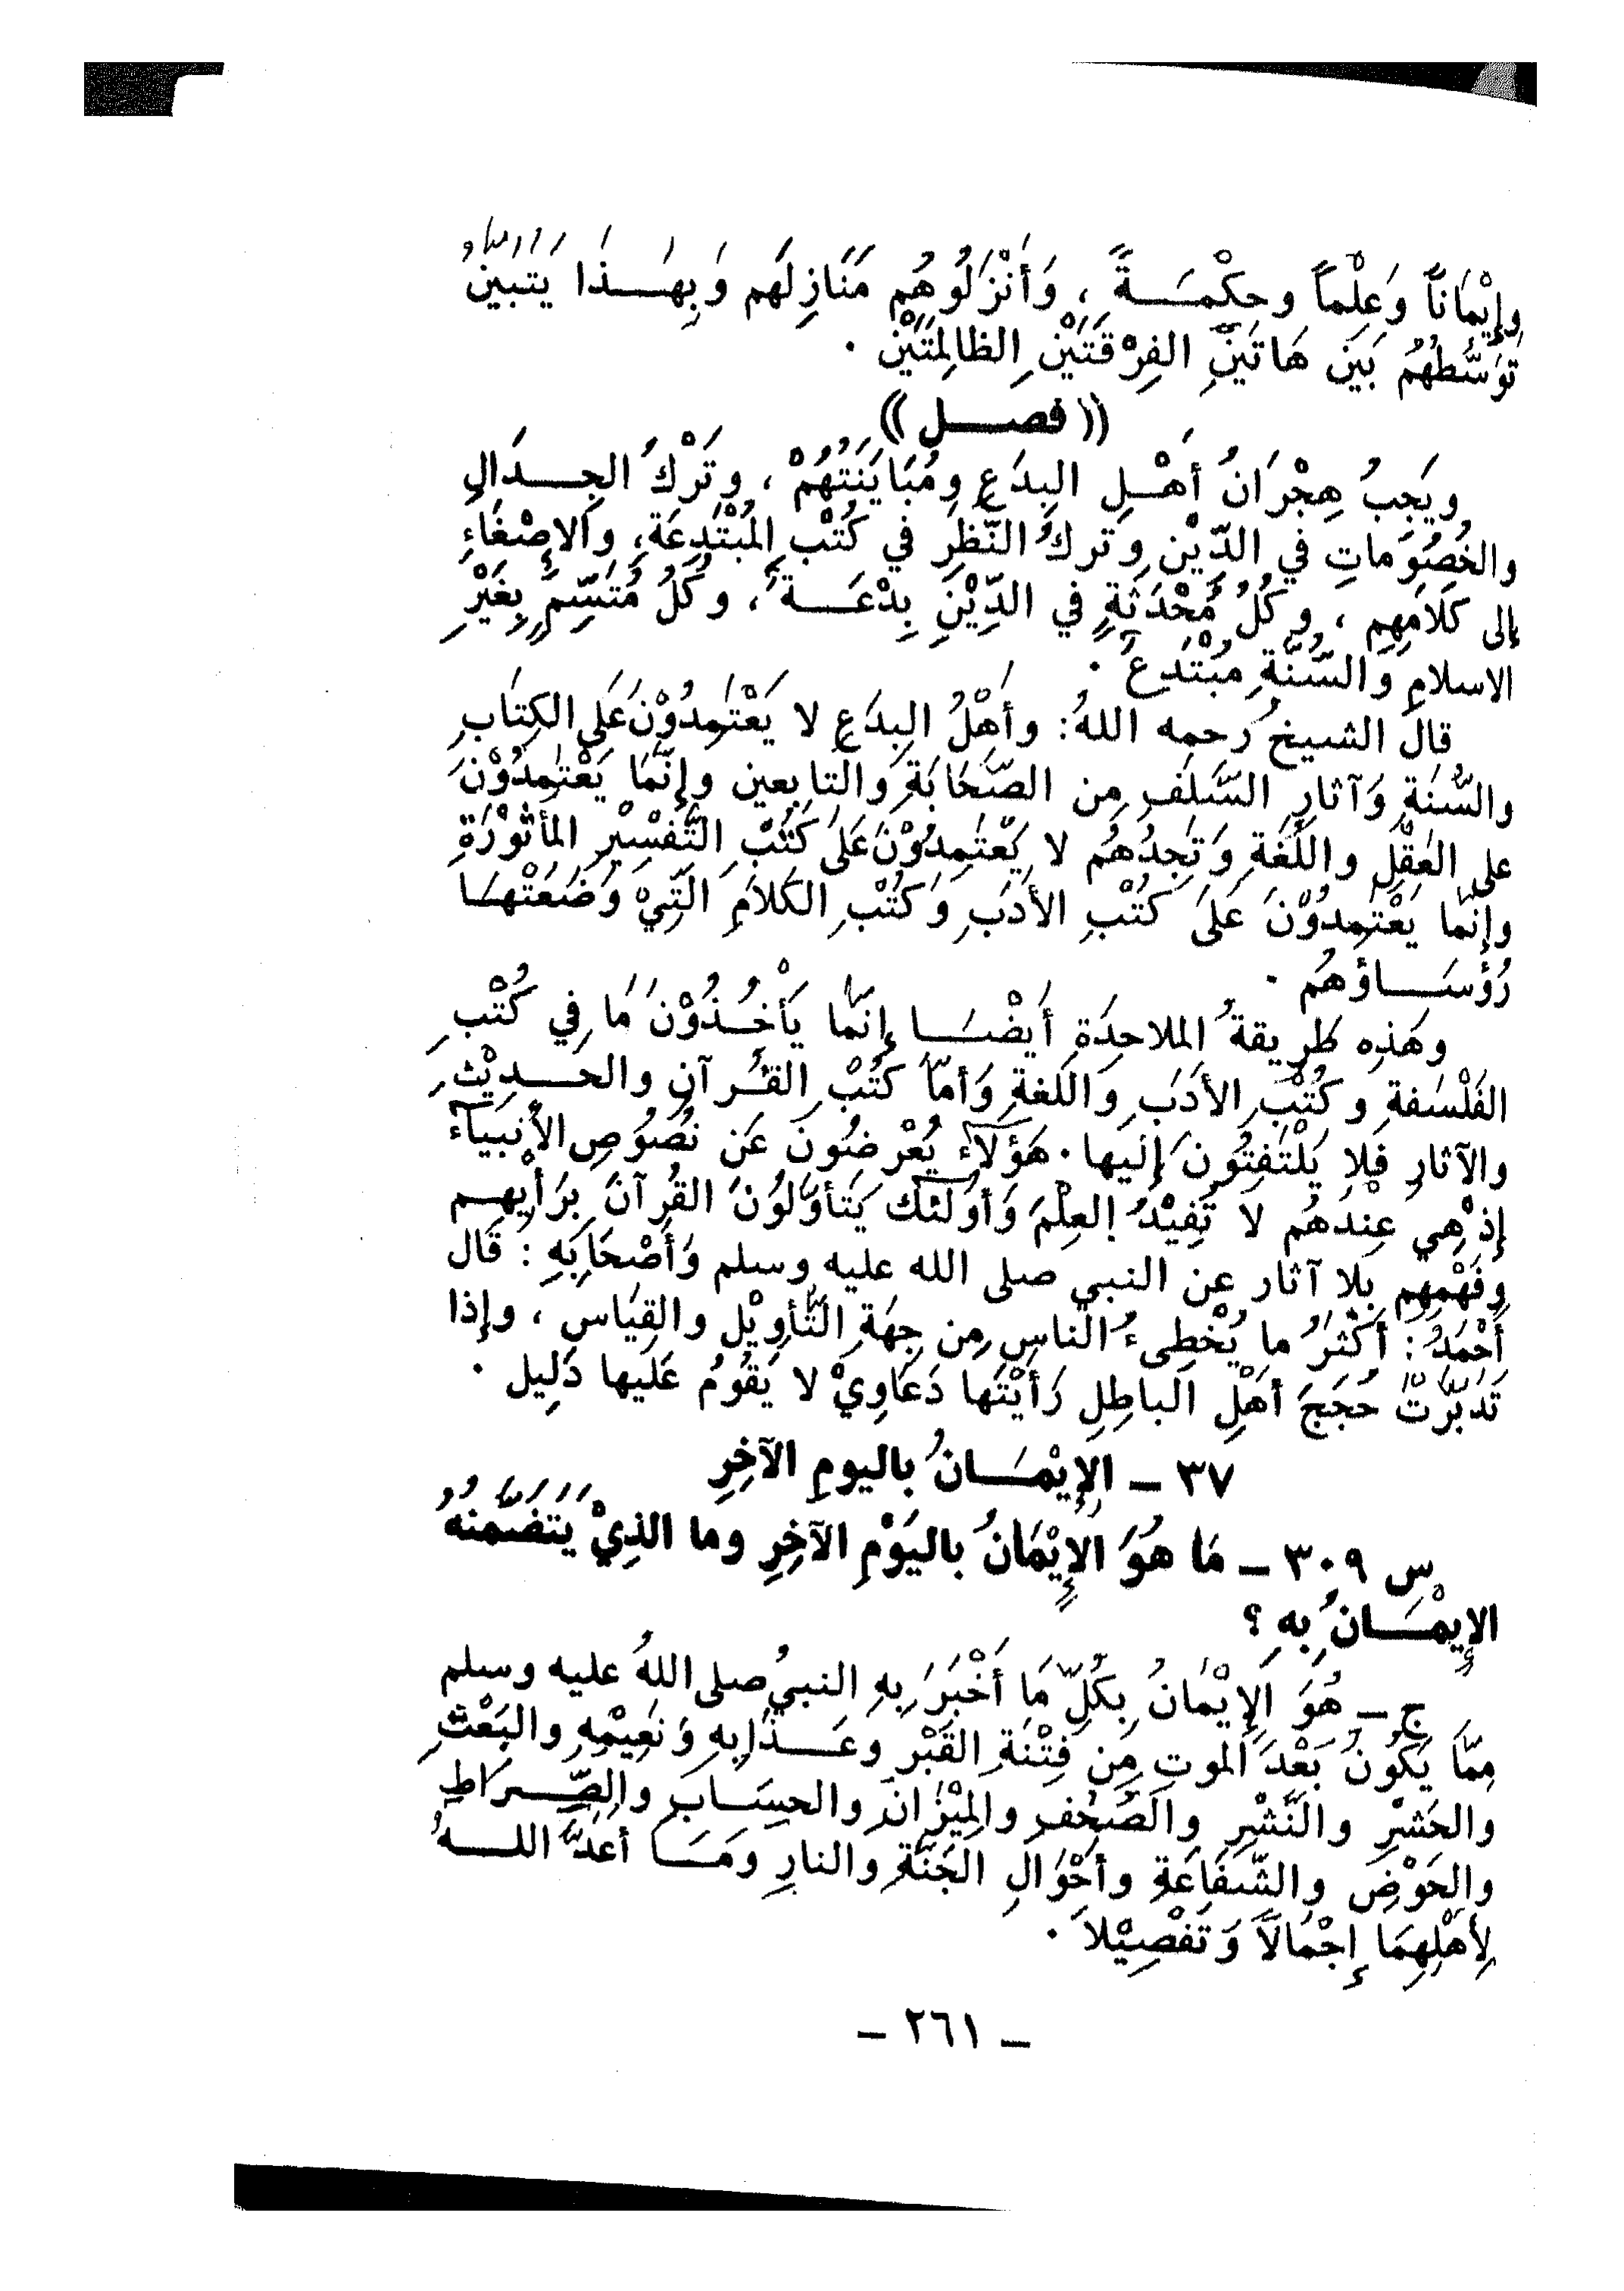 وإِيْمَاناً وَعِلْماً وحِكْمَـــةً ، وَأَنْزَلُوهُم مَنَازِلَهم وَبِهَـــذا يَتَبَيَّنُ
تَوَسُّطُهُمْ بَيْنَ هَاتَيْنِ الفِرْقَتَيْنِ الظالِمَتَيْنِ .
(( فصــــل ))
ويَجِبُ هِجْرَانُ أَهْـــلِ البِدَعِ ومُبَايَنَتُهُمْ ، وتَرْكُ الجِــــدَالِ
والخُصُوَماتِ في الدِّيْنِ وتَركُ النَّظَرِ في كُتْبِ المُبْتَدِعَةِ، والإِصْغَاءِ
إلى كَلَامِهِم ، وكُلُّ مُحْدَثَةٍ في الدِّيْنِ بِدْعَـــةٌ ، وكُلُ مُتَسِّمٍ بِغَيْرِ
الاسلامِ وَالسُّنَّةِ مُبْتَدِعٌ .
قالَ الشيخُ رَحمه اللهُ: وأَهْلُ البِدَعِ لا يَعْتَمِدُوْنَ عَلى الكِتَابِ
والسُّنَةِ وَآثارِ السَّلَفِ مِن الصَّحَابَةِ وَالتابِعين وإِنَّمَا يَعْتَمِدُوْنَ
على العَقْلِ واللُّغَةِ وَتَجِدُهُم لا يَعْتَمِدُوْنَ عَلَى كُتُبْ التَّفْسِيْرِ المأثُوْرَةِ
وإنَّما يَعْتَمِدُوْنَ عَلَى كُتْبِ الأَدَبِ وَكُتْبِ الكَلَامِ الَّتِيْ وَضَعَتْهَـــا
رُؤَسَـــاؤُهُم .
وهَذِه طَرِيقةُ الملاحِدَةِ أَيضْـــا إنَّما يَأْخُـــذُوْنَ مَا فِي كُتْبِ
الفَلْسَفةِ وكُتْبِ الأَدَبِ وَاللُّغةِ وَأَمّا كُتُبْ القُــرآنِ والحَـــدِيْثِ
والآثارِ فَلا يَلْتَفِتُونَ إلَيها . هَؤُلآءِ يُعْرِضُونَ عَن نُصُوصِ الأَنْبيآء
إِذْ هِي عِنْدَهُم لا تُفِيْدُ العِلْمَ وَأُولَئك يَتَأوَّلُونَ القُرآنَ بِرَأْيِهــم
وفَهْمِهِم بِلا آثار عن النبي صلى الله عليه وسلم وَأَصْحَابِهِ : قَال
أَحْمَدُ : أَكْثَرُ ما يُخْطِىءُ الناسِ مِن جِهَةِ التَّأوِيْل والقِيَاسِ ، وإذا
تَدَبَّرْتَ حُجَجَ أَهْلِ الباطِلِ رَأَيْتَها دَعَاوِيْ لا يَقُومُ عَلَيها دَلِيل .
٣٧ ــ الإِيْمَـــانُ باليومِ الآخِرِ
س ٣٠٩ ــ مَا هُوَ الإِيْمَانُ باليَوْمِ الآخِرِ وما الذِيْ يَتَضَمَّنُهُ
الإِيمْـــانُ بِهِ ؟
ج ــ هُوَ الإِيْمَانُ بِكُلِّ مَا أَخْبَرَ بِهِ النبيُ صلى اللهُ عليه وسلم
مِمَّا يَكُونُ بَعْدَ الموتِ مِن فِتْنَةِ القَبْرِ وعَـــذَابِهِ وَنَعِيْمِهِ والبَعْثِ
والحَشْرِ والنَّشْرِ والصُحُفِ والمِيْزَانِ والحِسَـــابِ والصِّـــرَاطِ
والحَوْضِ والشَّفَاعَةِ وأَحْوَالِ الجَنَّةِ والنارِ ومَـــا أَعَدَّ اللـــهُ
لِأَهْلِهِمَا إِجْمَالاً وَتَفْصِيْلاً .
ــ ٢٦١ ــ